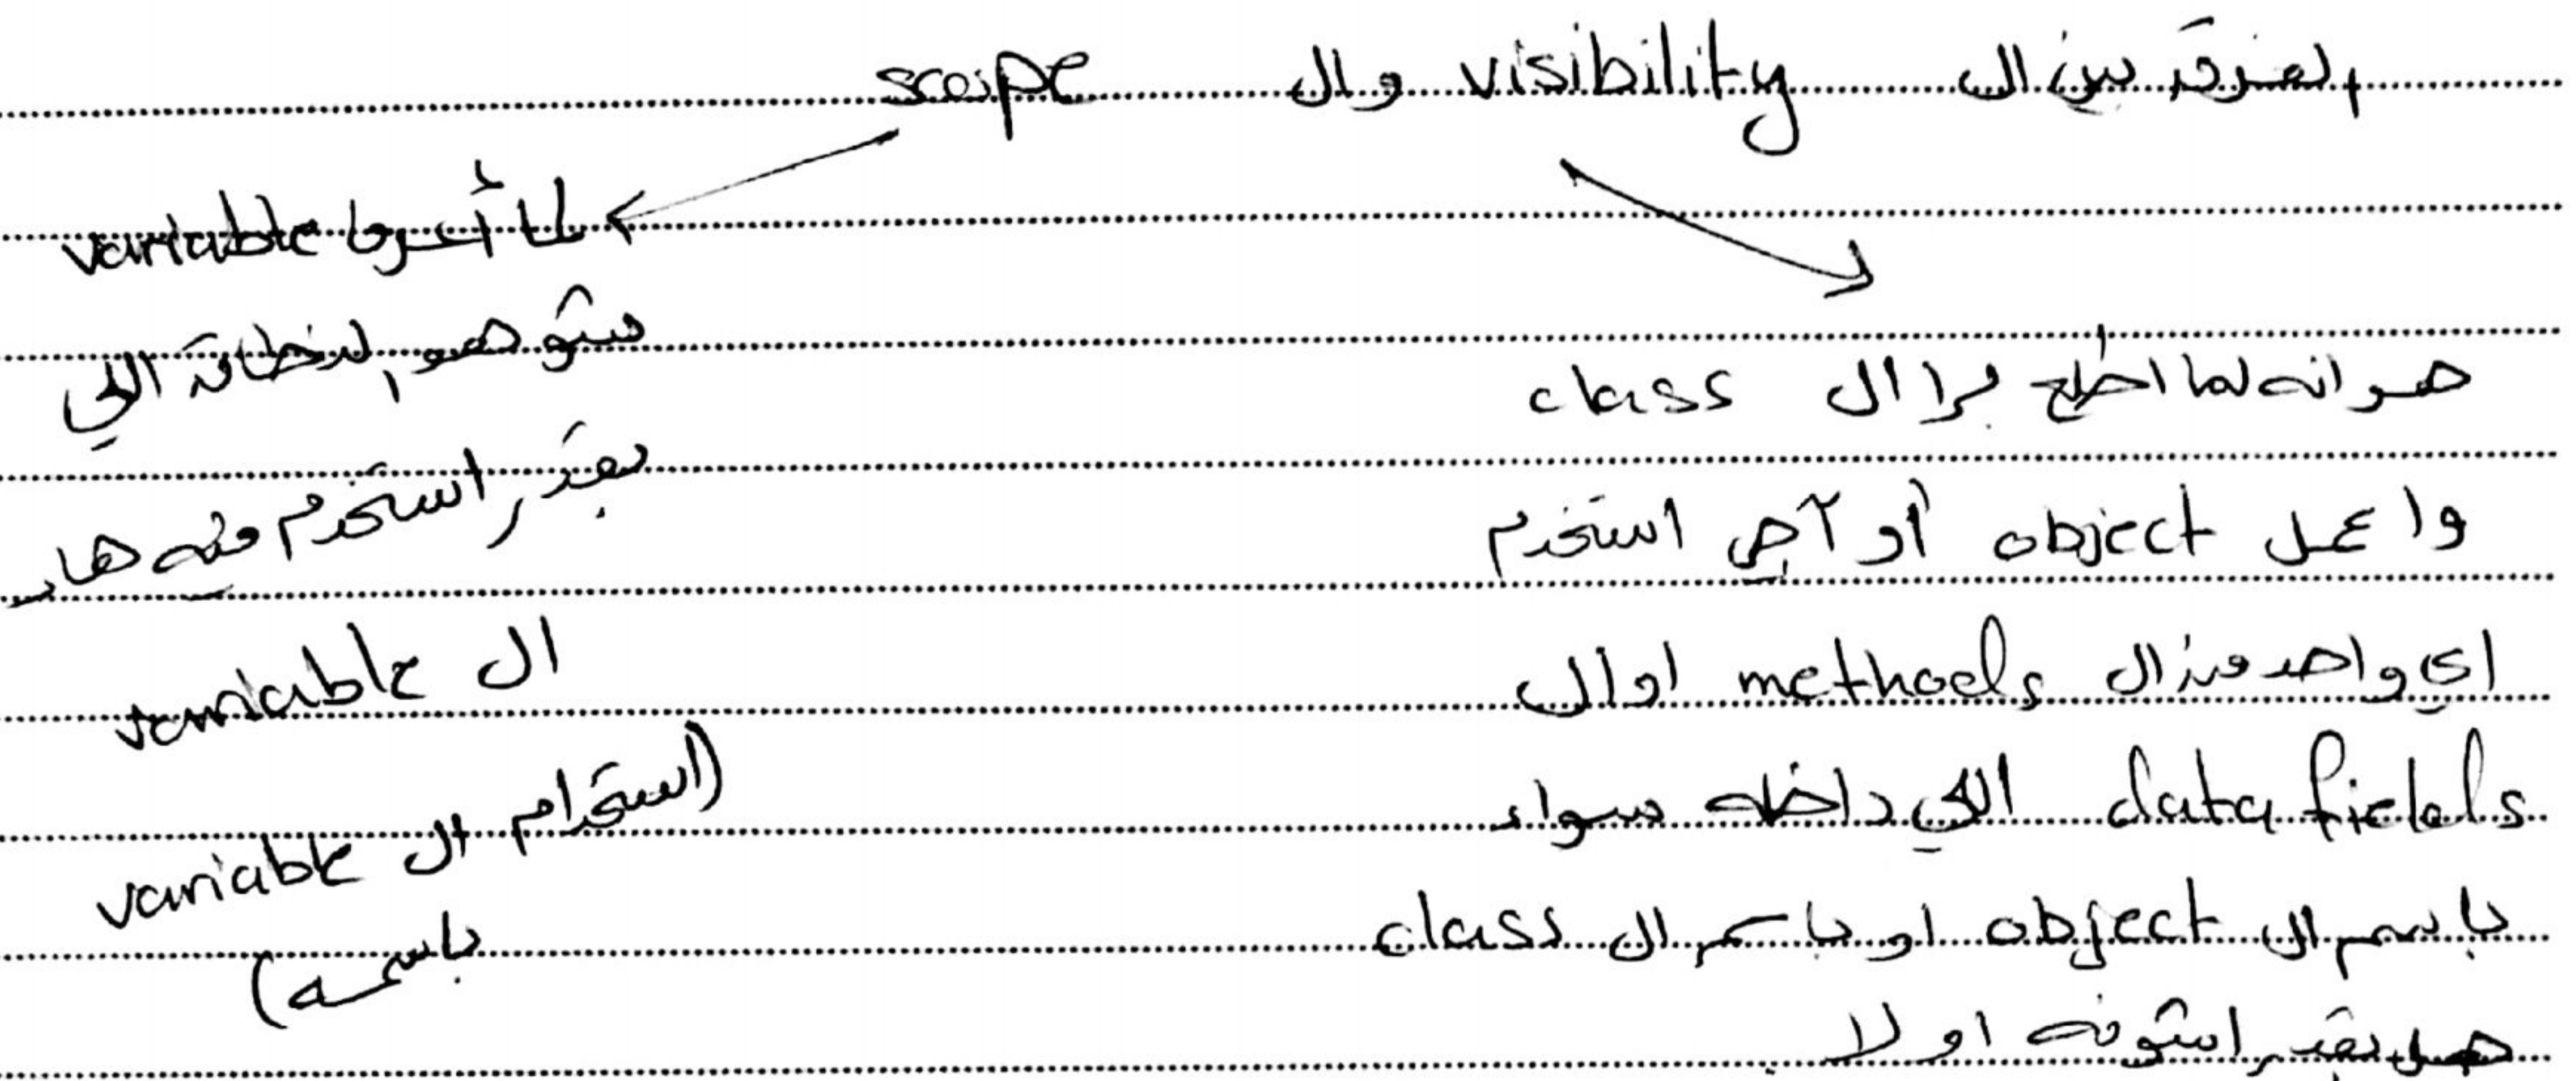 الفرق بين ال visibility وال scope
هو انه لما اطلع برا ال class
واعمل object أو آجي استخدم
اي واحد من ال methods او ال
data fields اللي داخله سواء
باسم ال object او باسم ال class
هل بقدر اشوفه او لا
لما أعرف variable
شو هو النطاق اللي
بقدر استخدم فيه هاد
ال variable
(استخدام ال variable
باسمه)